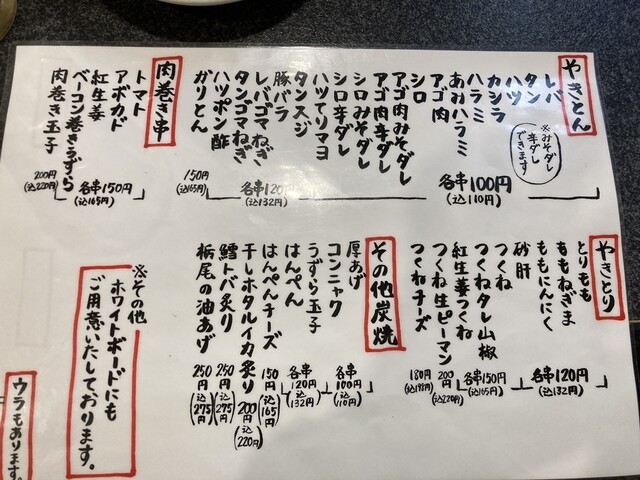 やきとん
※みそダレ
辛ダレ
できます
レバ
タン
ハツ
カシラ
ハラミ
あみハラミ
アゴ肉
シロ
各串100円
(込110円)
アゴ肉みそダレ
アゴ肉辛ダレ
シロみそダレ
シロ辛ダレ
ハツてりマヨ
タンスジ
豚バラ
レバゴマねぎ
タンゴマねぎ
ハツポン酢
各串120円
(込132円)
ガリとん
150円
(込165円)
肉巻き串
トマト
アボカド
紅生姜
ベーコン巻きうずら
各串150円
(込165円)
肉巻き玉子
200円
(込220円)
やきとり
とりもも
ももねぎま
ももにんにく
砂肝
各串120円
(込132円)
つくね
つくねタレ山椒
紅生姜つくね
各串150円
(込165円)
つくね生ピーマン
200円
(込220円)
つくねチーズ
180円
(込198円)
その他炭焼
厚あげ
コンニャク
各串100円
(込110円)
うずら玉子
はんぺん
各串120円
(込132円)
はんぺんチーズ
150円
(込165円)
干しホタルイカ炙り
200円
(込220円)
鱈トバ炙り
250円
(込275円)
栃尾の油あげ
250円
(込275円)
※その他
ホワイトボードにも
ご用意いたしております。
ウラもあります。